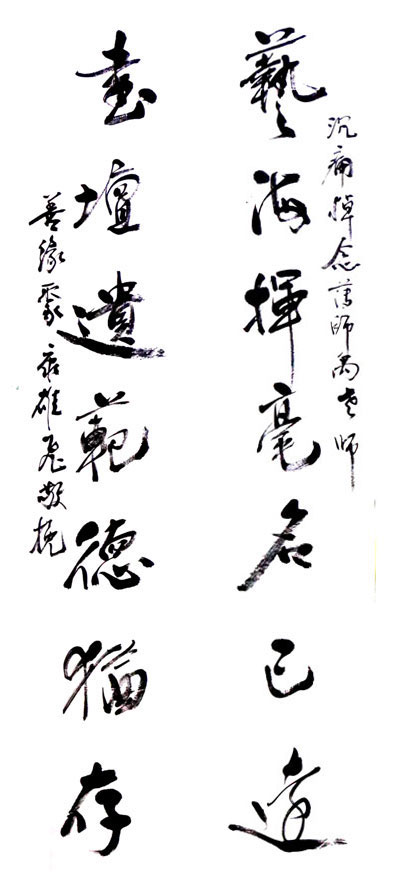 沉痛悼念師老師
藝海揮毫名已達
書壇遺範德猶存
善緣聚雄飛敬挽